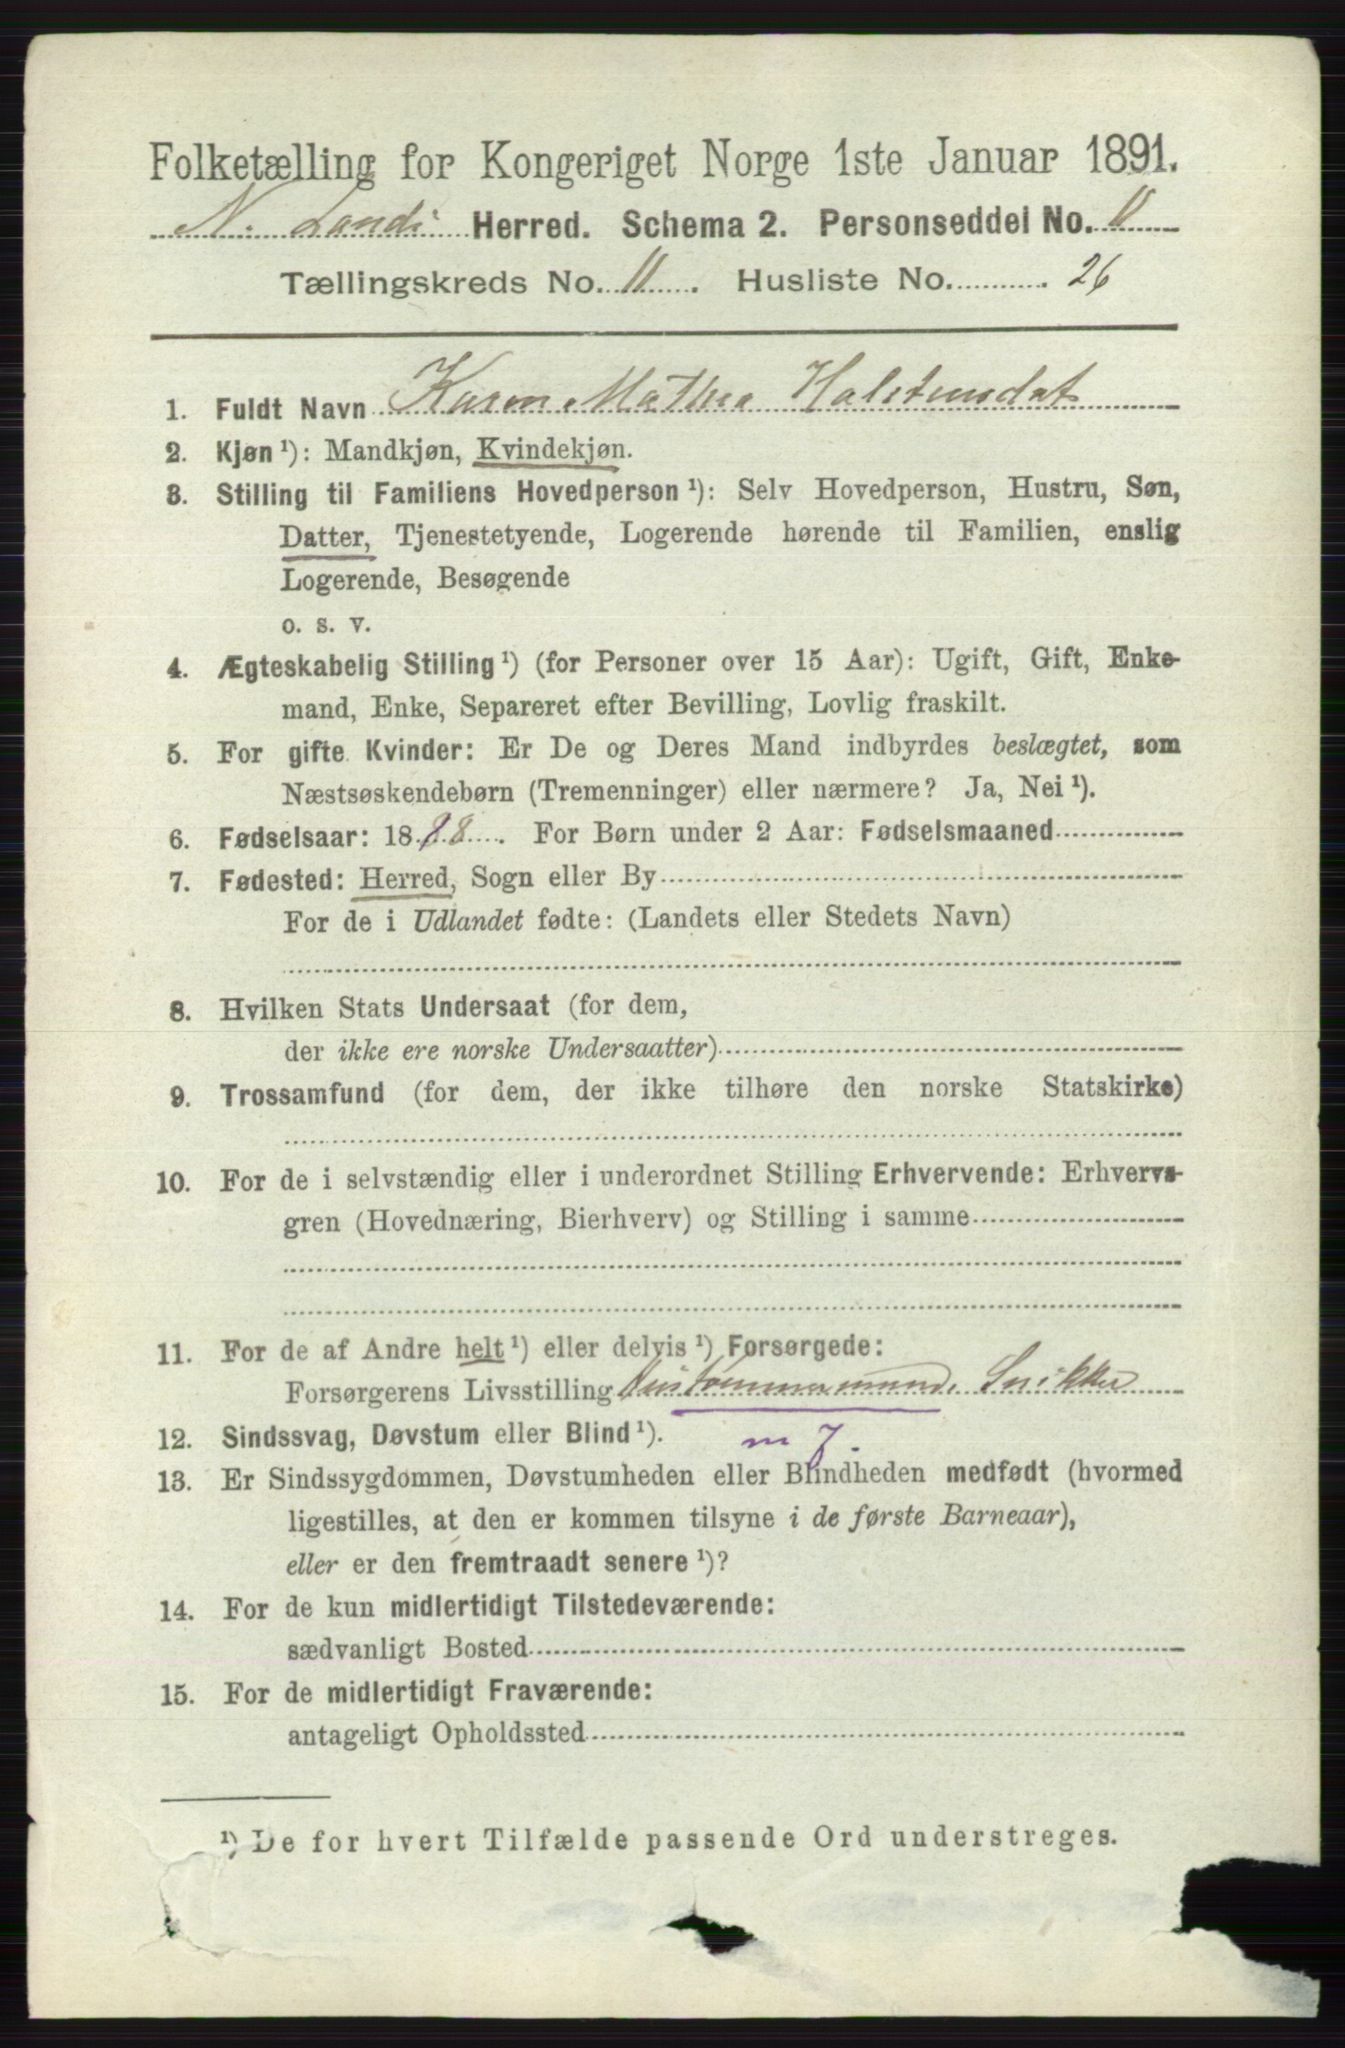 Folketælling for Kongeriget Norge 1ste Januar 1891.
N. Land Herred. Schema 2. Personseddel No. 11
Tællingskreds No. 11. Husliste No. 26
1. Fuldt Navn Karen Mathea
2. Kjøn ¹): Mandkjøn, Kvindekjøn.
3. Stilling til Familiens Hovedperson ¹): Selv Hovedperson, Hustru, Søn,
Datter, Tjenestetyende, Logerende hørende til Familien, enslig
Logerende, Besøgende
o. s. v.
4. Ægteskabelig Stilling ¹) (for Personer over 15 Aar): Ugift, Gift, Enke-
mand, Enke, Separeret efter Bevilling, Lovlig fraskilt.
5. For gifte Kvinder: Er De og Deres Mand indbyrdes beslægtet, som
Næstsøskendebørn (Tremenninger) eller nærmere? Ja, Nei ¹).
6. Fødselsaar: 1888. For Børn under 2 Aar: Fødselsmaaned
7. Fødested: Herred, Sogn eller By
For de i Udlandet fødte: (Landets eller Stedets Navn)
8. Hvilken Stats Undersaat (for dem,
der ikke ere norske Undersaatter)
9. Trossamfund (for dem, der ikke tilhøre den norske Statskirke)
10. For de i selvstændig eller i underordnet Stilling Erhvervende: Erhvervs-
gren (Hovednæring, Bierhverv) og Stilling i samme
11. For de af Andre helt ¹) eller delvis ¹) Forsørgede:
Forsørgerens Livsstilling Snikker
12. Sindssvag, Døvstum eller Blind ¹). m 7.
13. Er Sindssygdommen, Døvstumheden eller Blindheden medfødt (hvormed
ligestilles, at den er kommen tilsyne i de første Barneaar),
eller er den fremtraadt senere ¹)?
14. For de kun midlertidigt Tilstedeværende:
sædvanligt Bosted
15. For de midlertidigt Fraværende:
antageligt Opholdssted
¹) De for hvert Tilfælde passende Ord understreges.